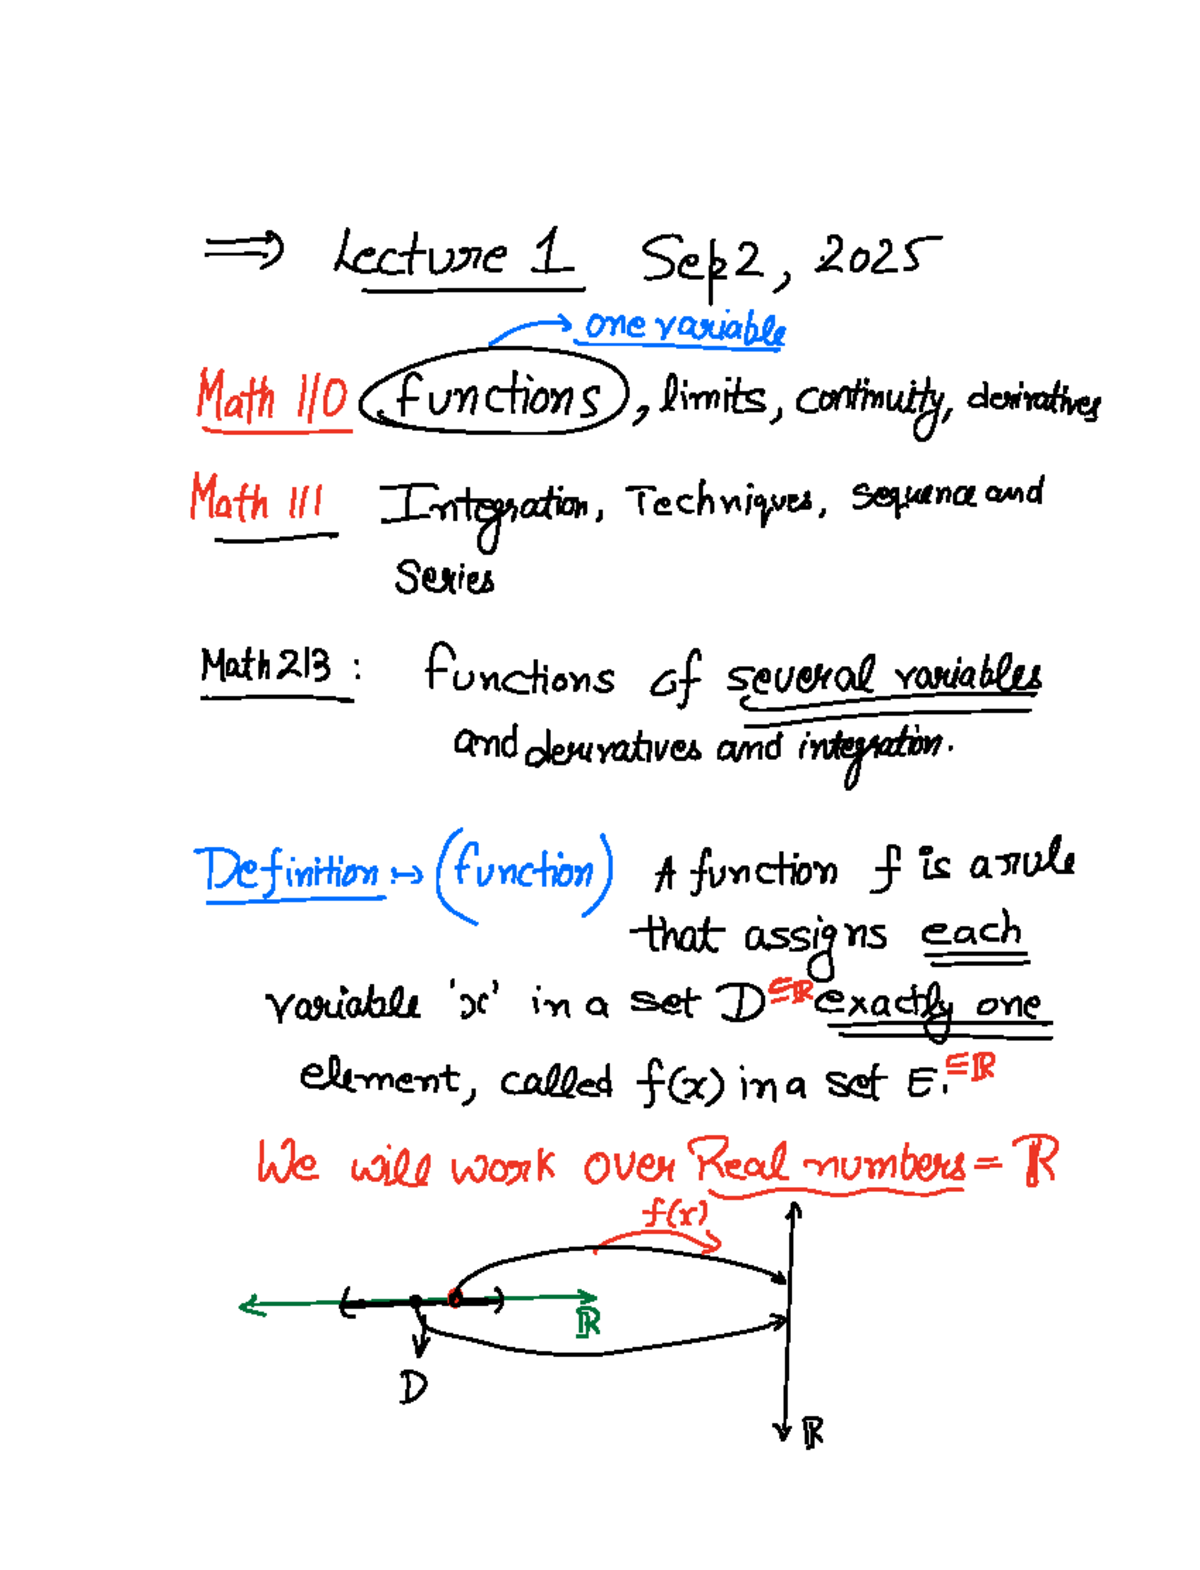 ⇒ Lecture 1 Sep 2, 2025
→ one variable
Math 110 functions, limits, continuity, derivatives
Math 111 Integration, Techniques, Sequence and
Series
Math 213 : functions of several variables
and derivatives and integration.
Definition :→ (function) A function f is a rule
that assigns each
variable 'x' in a set D ⊆ℝ exactly one
element, called f(x) in a set E. ⊆ℝ
We will work over Real numbers = ℝ
f(x)
ℝ
D
ℝ